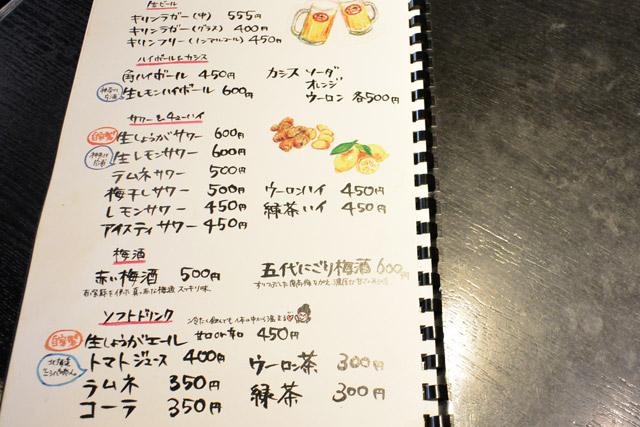 生ビール
キリンラガー(中) 555円
キリンラガー(グラス) 400円
キリンフリー(ノンアルコール) 450円
ハイボールとカシス
角ハイボール 450円
生レモンハイボール 600円
カシス ソーダ
オレンジ
ウーロン 各500円
サワー&チューハイ
自家製 生しょうがサワー 600円
生レモンサワー 600円
ラムネサワー 500円
梅干しサワー 500円
レモンサワー 450円
アイスティサワー 450円
ウーロンハイ 450円
緑茶ハイ 450円
梅酒
赤い梅酒 500円
スッキリ味
五代にごり梅酒 600円
ソフトドリンク
自家製 生しょうがエール 甘口or辛口 450円
北海道 トマトジュース 400円
ラムネ 350円
コーラ 350円
ウーロン茶 300円
緑茶 300円